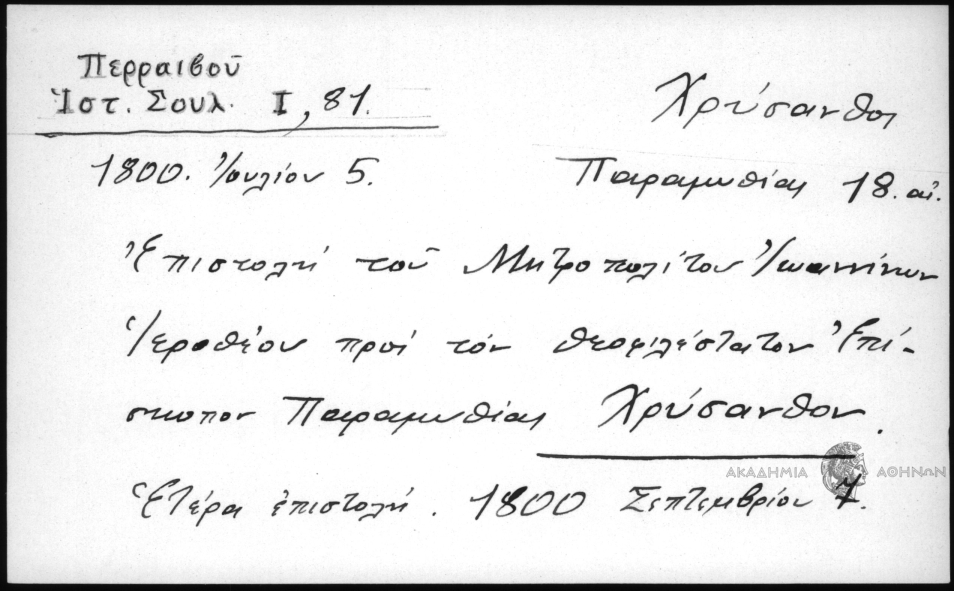 Περραιβοῦ
Ἱστ. Σουλ. I, 81.
Χρύσανθος
1800. Ἰουλίου 5.
Παραμυθίας 18. αἰ.
Ἐπιστολὴ τοῦ Μητροπολίτου Ἰωαννίνων
Ἱεροθέου πρὸς τὸν θεοφιλέστατον Ἐπί-
σκοπον Παραμυθίας Χρύσανθον.
ΑΚΑΔΗΜΙΑ ΑΘΗΝΩΝ
Ἑτέρα ἐπιστολή. 1800 Σεπτεμβρίου 7.